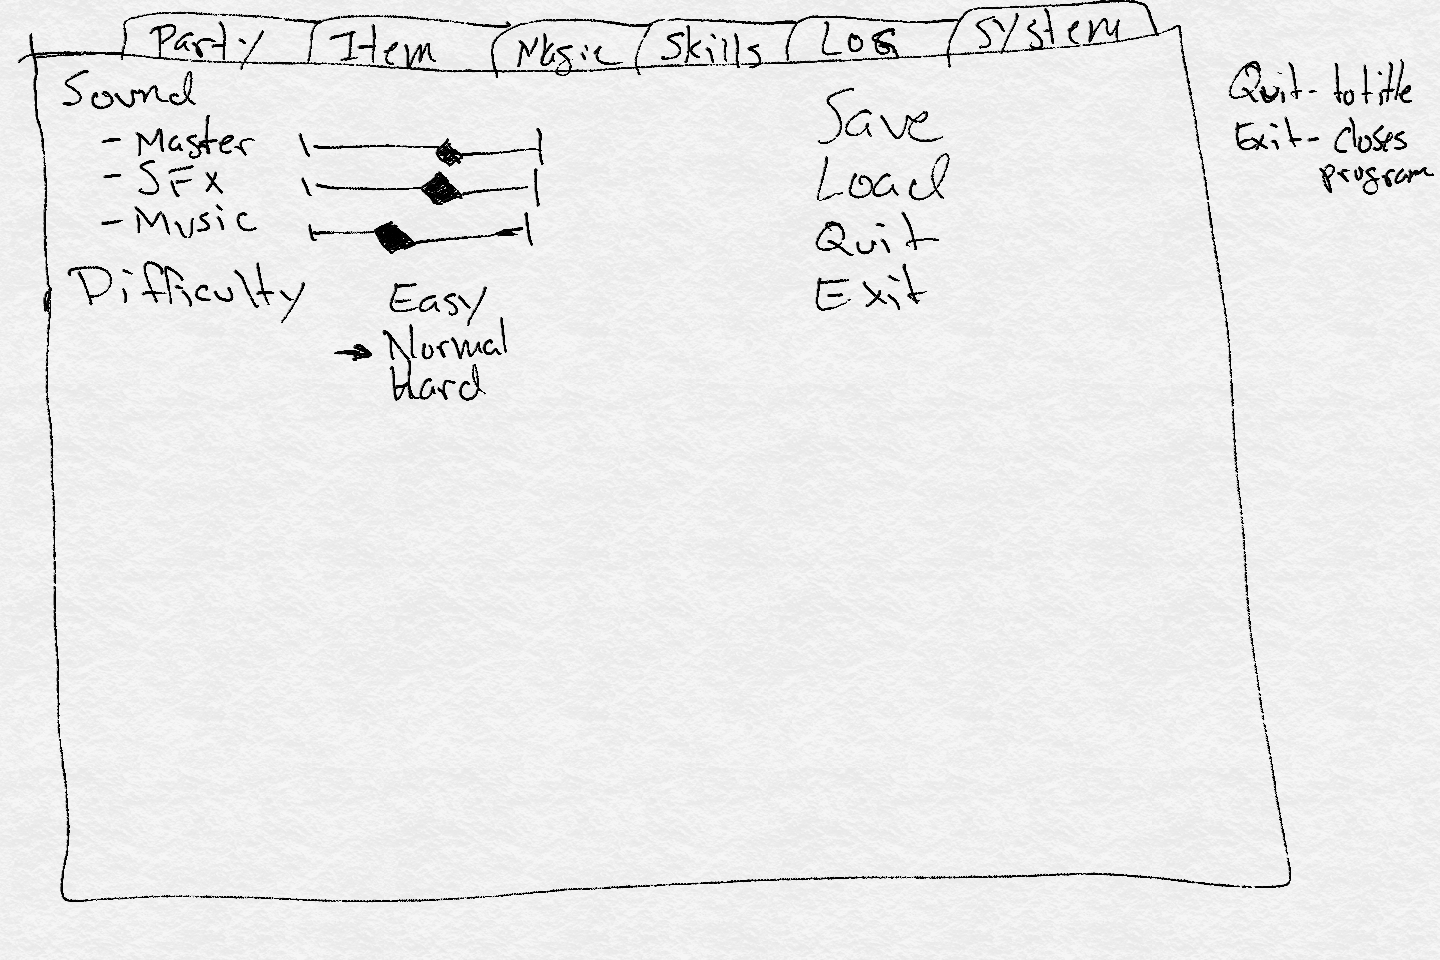 Party Item Magic Skills LOG System
Sound
- Master
- SFx
- Music
Difficulty
Easy
→ Normal
Hard
Save
Load
Quit
Exit
Quit - to title
Exit - closes
program